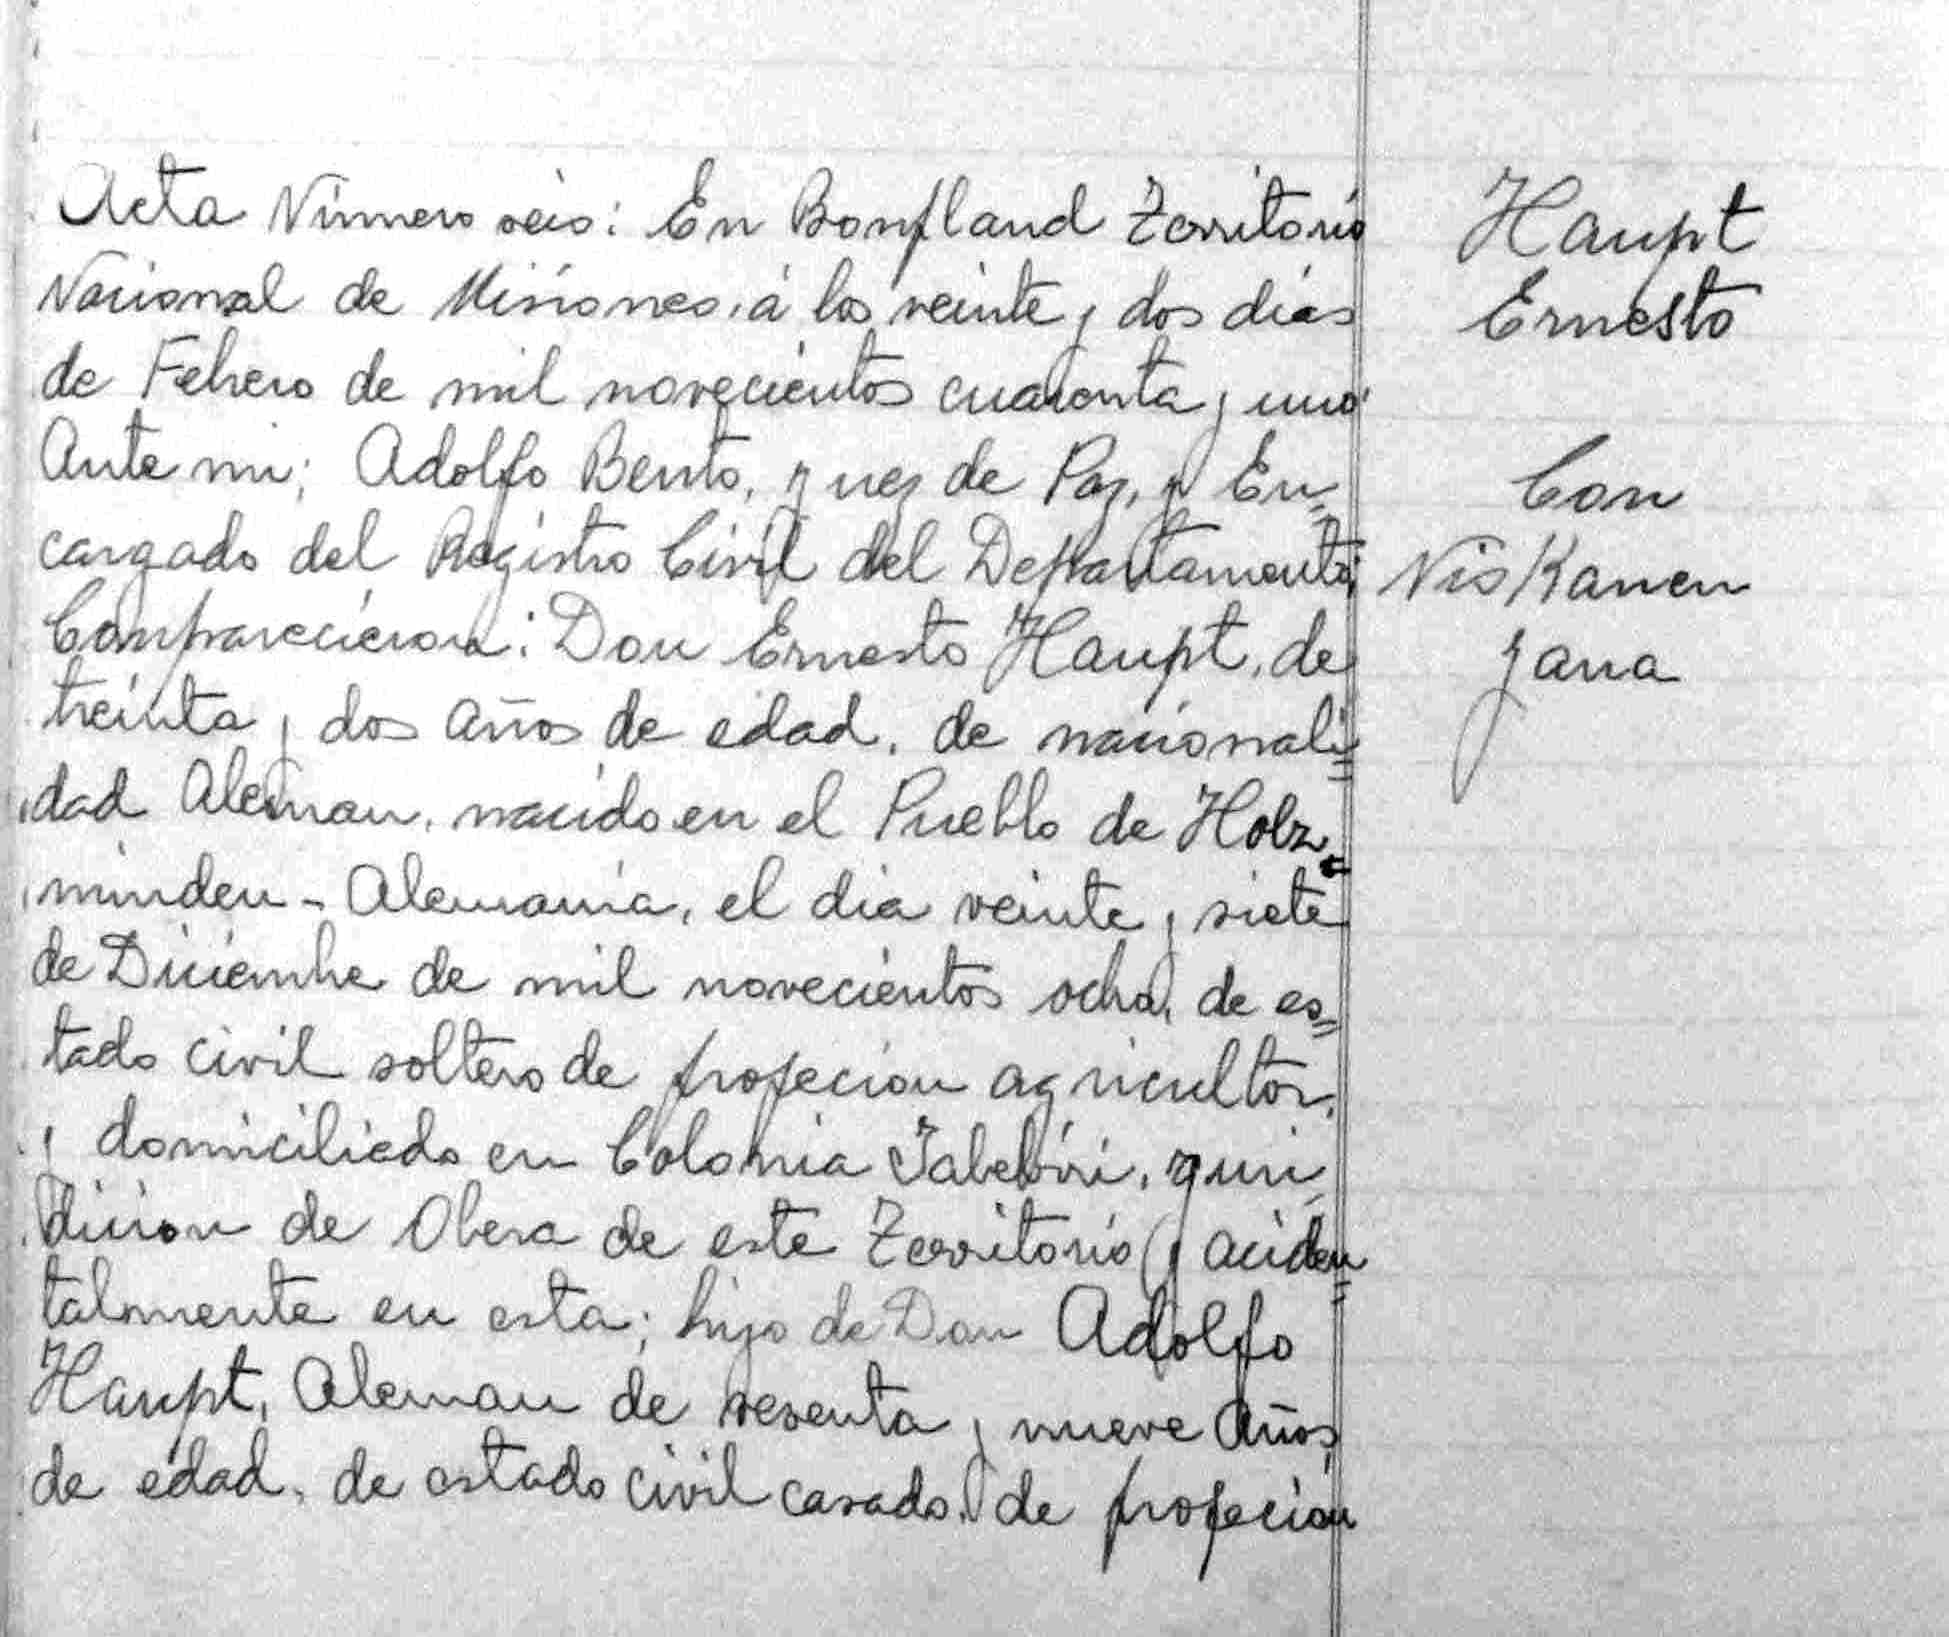 Acta Número seis: En Bonpland Territorio
Nacional de Misiones, á los veinte y dos dias
de Febrero de mil novecientos cuarenta y uno
Ante mi; Adolfo Bento, Juez de Paz, y En-
cargado del Registro Civil del Departamento;
Comparecieron: Don Ernesto Haupt, de
treinta y dos años de edad, de nacionali=
dad Aleman, nacido en el Pueblo de Holz-
minden - Alemania, el dia veinte y siete
de Diciembre de mil novecientos ocho, de es=
tado civil soltero de profecion agricultor,
y domiciliado en Colonia Yabebiri, juri-
dicion de Obera de este Territorio y aciden=
talmente en esta; hijo de Don Adolfo
Haupt, Aleman de sesenta y nueve años
de edad, de estado civil casado, de profecion
Haupt
Ernesto
Con
Niskanen
Jana